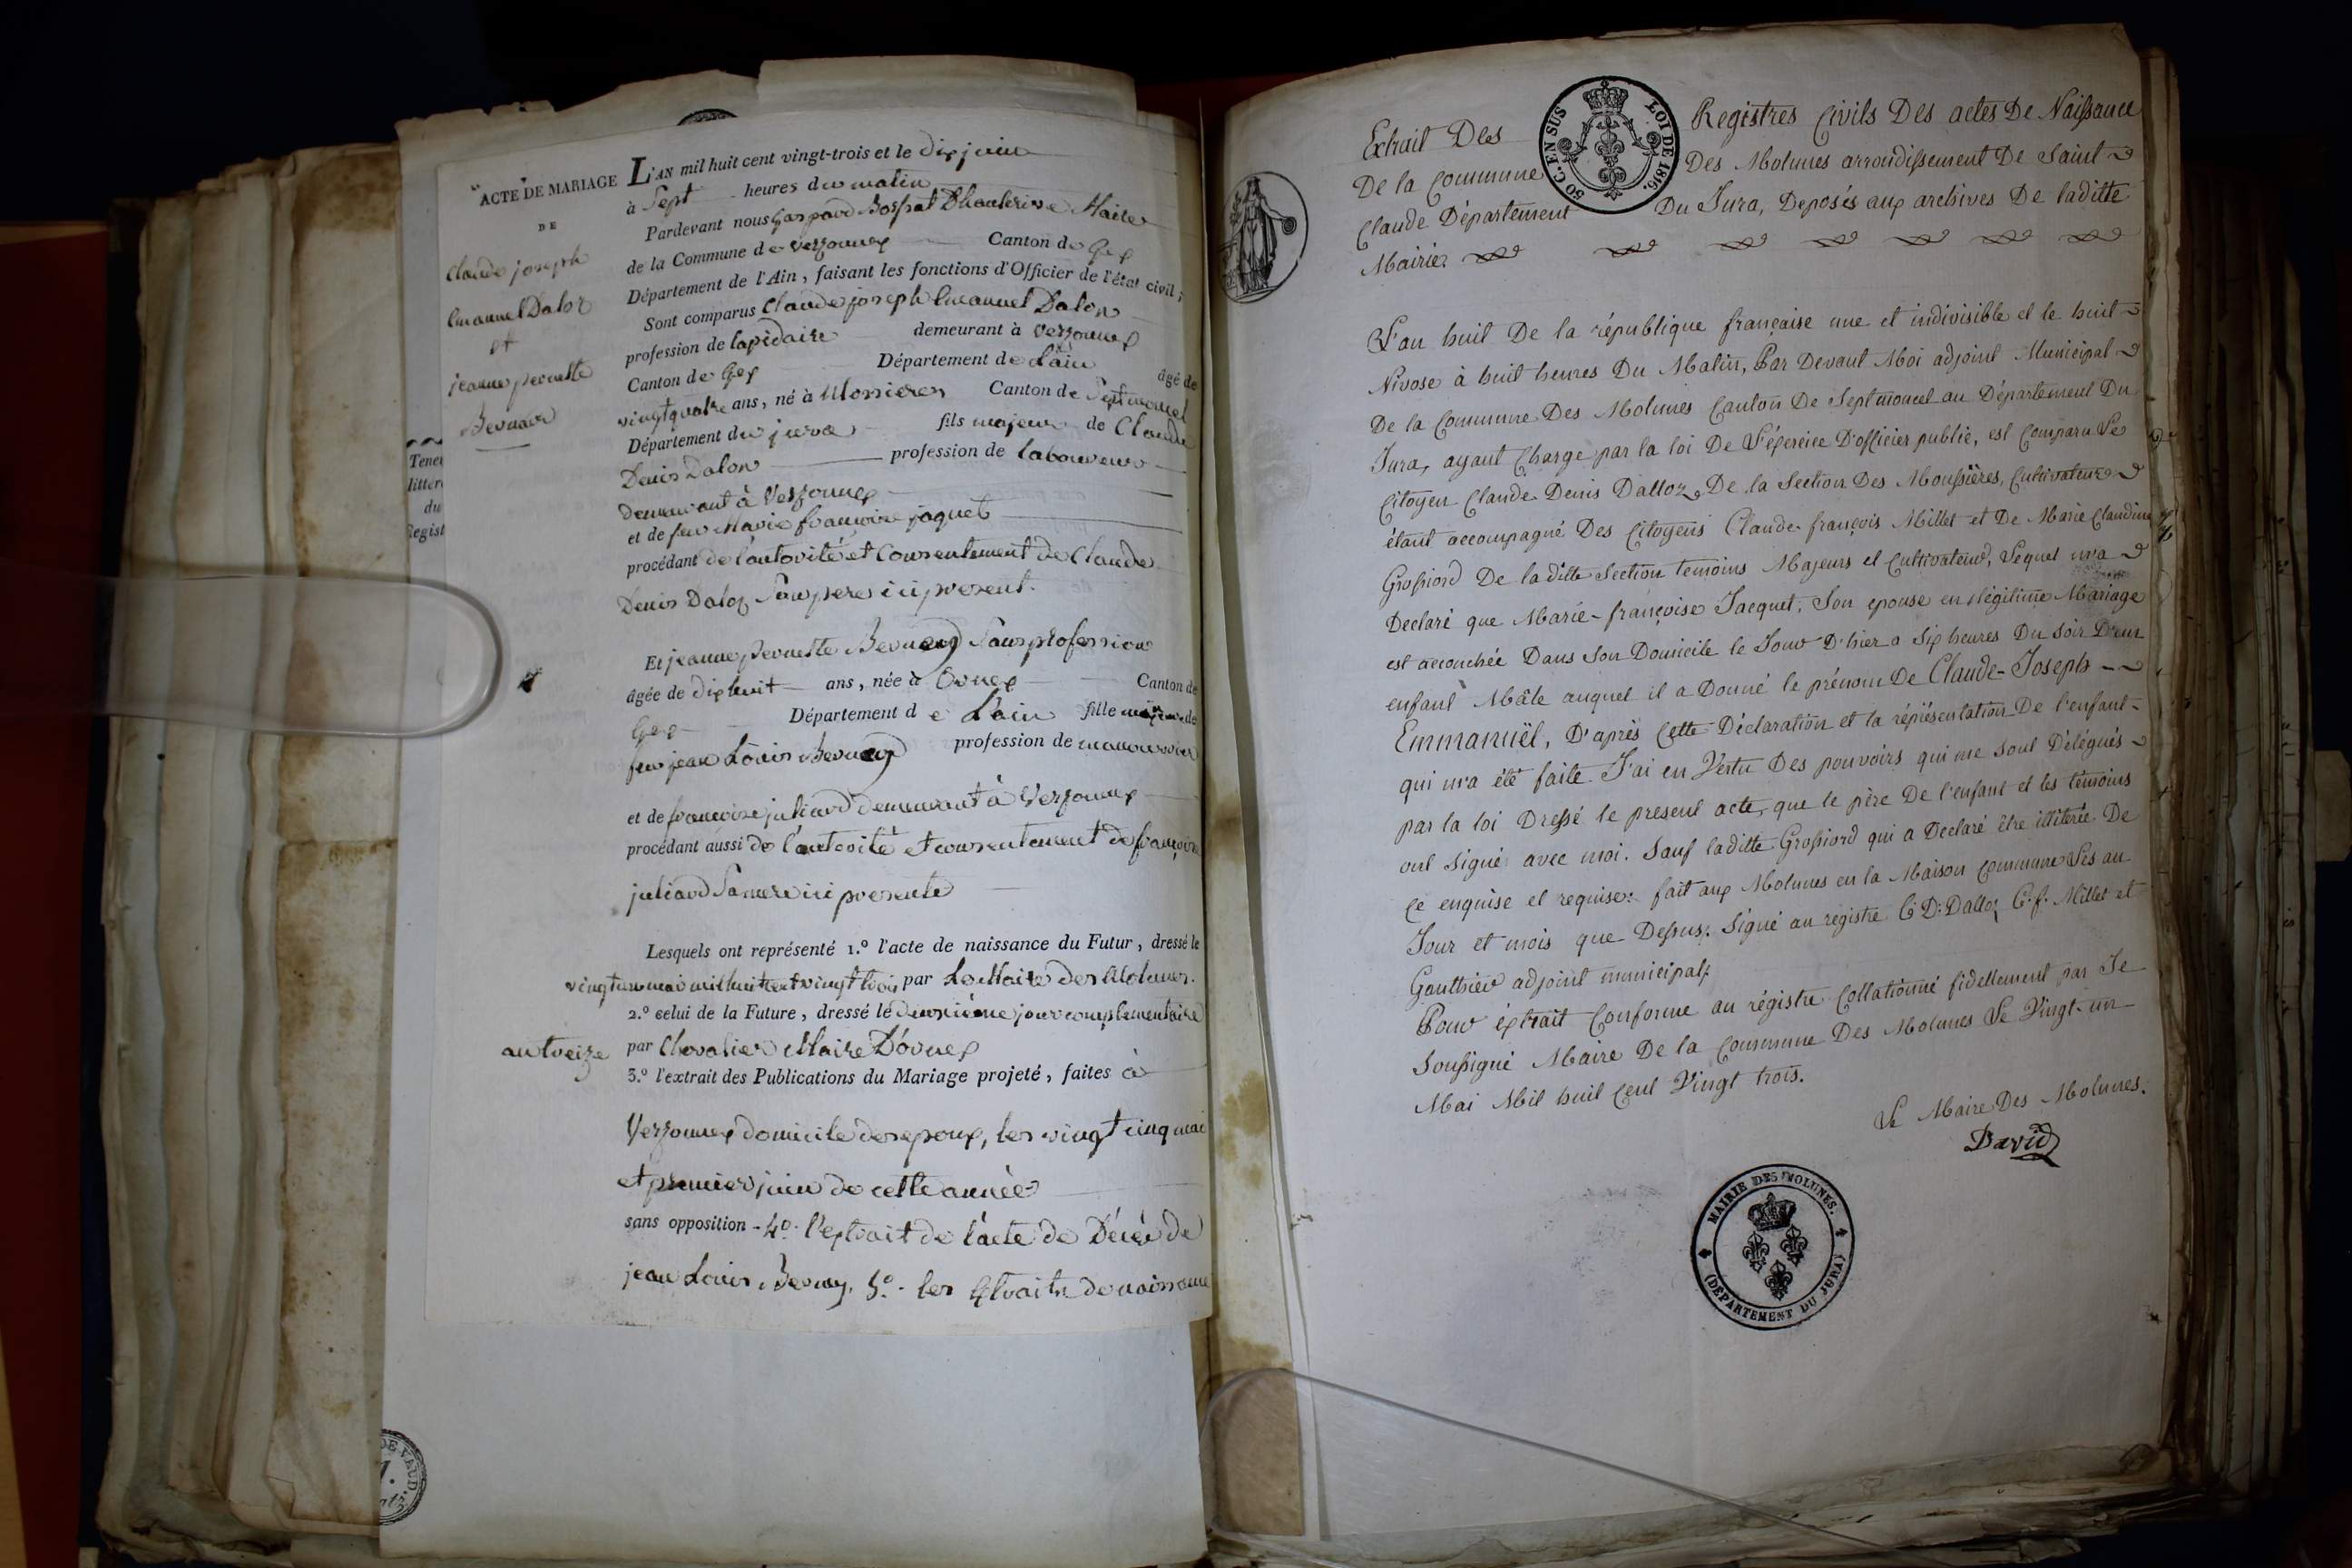 ACTE DE MARIAGE
DE
Claude joseph
Emanuel Daloz
et
jeanne pernette
Bernard
L'AN mil huit cent vingt-trois et le dix juin
à Sept heures du matin
Pardevant nous Gaspard Bossrat Dhauterive Maire
de la Commune de Versonnex Canton de Gex
Département de l'Ain, faisant les fonctions d'Officier de l'état civil;
Sont comparus Claude joseph Emanuel Daloz
profession de lapidaire demeurant à Versonnex
Canton de Gex Département de L'ain âgé de
vingtquatre ans, né à Mossieres Canton de Septmoncel
Département du jura fils majeur de Claude
Denis daloz profession de laboureur
demeurant à Versonnex
et de feue Marie francoise jaquet
procédant de l'autorité et Consentement de Claude
Denis Daloz Son pere ici present.
Et jeanne pernette Bernard Sans profession
âgée de dixhuit ans, née à Ornex Canton de
Gex Département de L'ain fille mineure de
feu jean Louis Bernard profession de manouvrier
et de francoise juliard demeurant à Versonnex
procédant aussi de l'autorité et consentement de francoise
juliard Sa mere ici presente
Lesquels ont représenté 1.º l'acte de naissance du Futur, dressé le
vingt un mai mil huit cent vingt trois par Le Maire des Molunes.
2.º celui de la Future, dressé le deuxième jour complementaire
an treize par Chevalier Maire D'ornex
3.º l'extrait des Publications du Mariage projeté, faites à
Versonnex domicile des epoux, les vingt cinq mai
et premier juin de cette année
sans opposition - 4.º l'extrait de l'acte de Décés de
jean Louis Bernard. 5.º les Extraits de naissance
Tene
litter
du
Regist
DE VAUD.
Extrait Des Registres Civils Des actes De Naissance
De la Commune Des Molunes arrondissement De Saint
Claude Département Du Jura, Deposés aux archives De laditte
Mairie.
50 C. EN SUS
LOI DE 1816.
L'an huit De la république française une et indivisible et le huit
Nivose à huit heures Du Matin, Par Devant Moi adjoint Municipal
De la Commune Des Molunes Canton De Septmoncel au Département Du
Jura, ayant Charge par la loi De L'éxercice D'officier public, est Comparu Le
Citoyen Claude Denis Dalloz, De la Section Des Moussières, Cultivateur
étant accompagné Des Citoyens Claude-françois Millet et De Marie Claudine
Grossiord De laditte Section temoins Majeurs et Cultivateurs, Lequel m'a
Declaré que Marie-françoise Jacquet, Son epouse en légitime Mariage
est accouchée Dans Son Domicile le Jour D'hier a Six heures Du Soir D'un
enfant Mâle auquel il a Donné le prénom De Claude-Joseph
Emmanuël, D'après Cette Déclaration et la réprésentation De l'enfant
qui m'a été faite J'ai en Vertu Des pouvoirs qui me sont Délégués
par la loi Dressé le present acte, que le père De l'enfant et les témoins
ont signé avec moi. Sauf laditte Grossiord qui a Declaré être illiterée De
Ce enquise et requise: fait aux Molunes en la Maison Commune Les an
Jour et mois que Dessus. Signé au registre C D: Dalloz C.f. Millet et
Gauthier adjoint municipal.
Pour éxtrait Conforme au régistre Collationné fidellement par Je
Soussigné Maire De la Commune Des Molunes Le Vingt-un
Mai Mil huit Cent Vingt trois.
Le Maire Des Molunes.
David
MAIRIE DES MOLUNES.
(DÉPARTEMENT DU JURA)